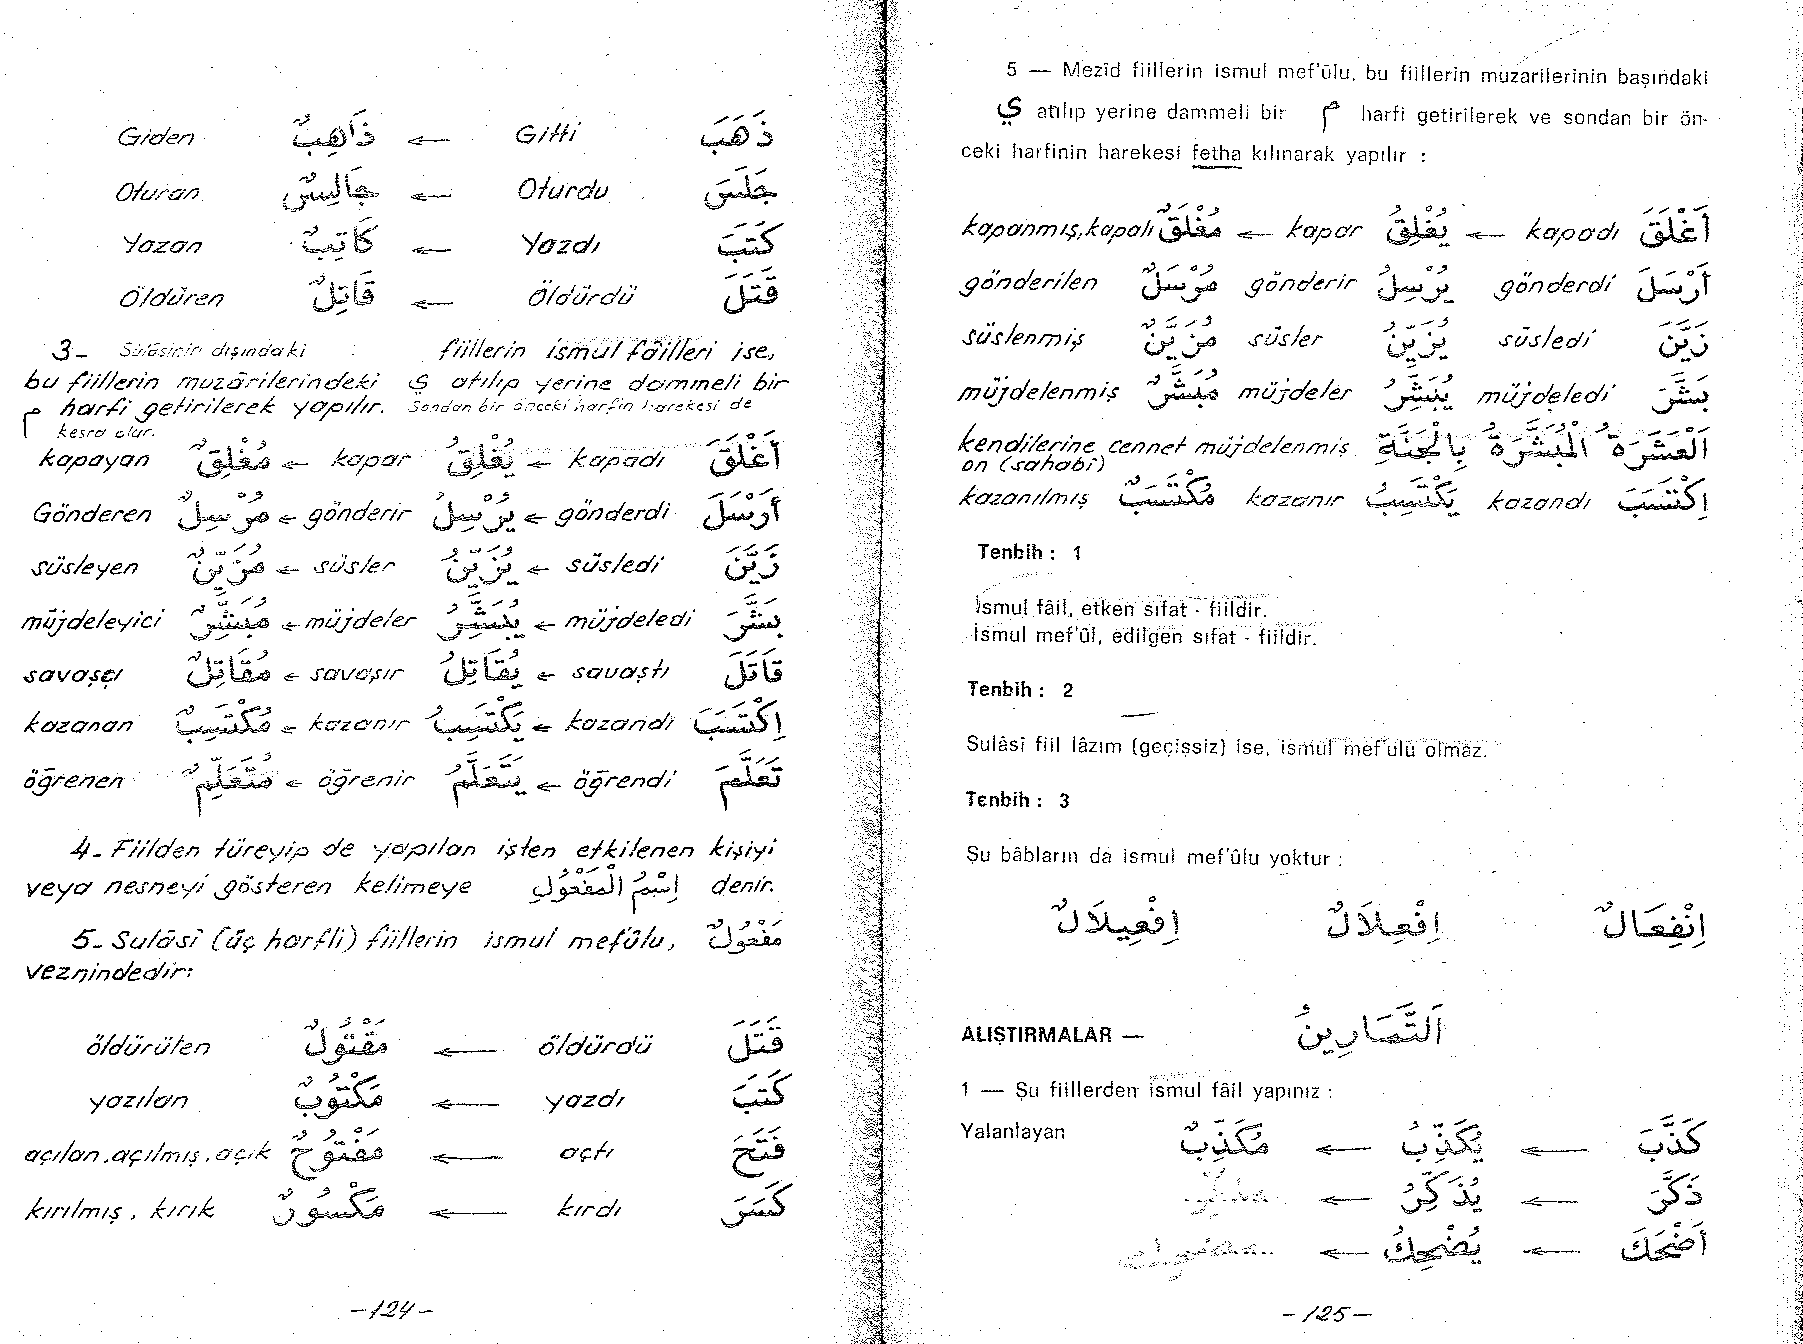 Giden ذَاهِبٌ ← Gitti ذَهَبَ
Oturan جَالِسٌ ← Oturdu جَلَسَ
Yazan كَاتِبٌ ← Yazdı كَتَبَ
Öldüren قَاتِلٌ ← Öldürdü قَتَلَ
3- Sülâsinin dışındaki fiillerin ismul fâilleri ise,
bu fiillerin muzârilerindeki ي atılıp yerine dammeli bir
م harfi getirilerek yapılır. Sondan bir önceki harfin harekesi de
kesra olur.
kapayan مُغْلِقٌ ← kapar يُغْلِقُ ← kapadı أَغْلَقَ
Gönderen مُرْسِلٌ ← gönderir يُرْسِلُ ← gönderdi أَرْسَلَ
süsleyen مُزَيِّنٌ ← süsler يُزَيِّنُ ← süsledi زَيَّنَ
müjdeleyici مُبَشِّرٌ ← müjdeler يُبَشِّرُ ← müjdeledi بَشَّرَ
savaşçı مُقَاتِلٌ ← savaşır يُقَاتِلُ ← savaştı قَاتَلَ
kazanan مُكْتَسِبٌ ← kazanır يَكْتَسِبُ ← kazandı اِكْتَسَبَ
öğrenen مُتَعَلِّمٌ ← öğrenir يَتَعَلَّمُ ← öğrendi تَعَلَّمَ
4- Fiilden türeyip de yapılan işten etkilenen kişiyi
veya nesneyi gösteren kelimeye اِسْمُ الْمَفْعُولِ denir.
5- Sulâsî (üç harfli) fiillerin ismul mefûlu, مَفْعُولٌ
veznindedir:
öldürülen مَقْتُولٌ ← öldürdü قَتَلَ
yazılan مَكْتُوبٌ ← yazdı كَتَبَ
açılan, açılmış, açık مَفْتُوحٌ ← açtı فَتَحَ
kırılmış, kırık مَكْسُورٌ ← kırdı كَسَرَ
-124-
5 — Mezîd fiillerin ismul mef'ûlu, bu fiillerin muzarilerinin başındaki
ي atılıp yerine dammeli bir م harfi getirilerek ve sondan bir ön-
ceki harfinin harekesi fetha kılınarak yapılır :
kapanmış, kapalı مُغْلَقٌ ← kapar يُغْلِقُ ← kapadı أَغْلَقَ
gönderilen مُرْسَلٌ gönderir يُرْسِلُ gönderdi أَرْسَلَ
süslenmiş مُزَيَّنٌ süsler يُزَيِّنُ süsledi زَيَّنَ
müjdelenmiş مُبَشَّرٌ müjdeler يُبَشِّرُ müjdeledi بَشَّرَ
kendilerine cennet müjdelenmiş اَلْعَشَرَةُ الْمُبَشَّرَةُ بِالْجَنَّةِ
on (sahabî)
kazanılmış مُكْتَسَبٌ kazanır يَكْتَسِبُ kazandı اِكْتَسَبَ
Tenbih : 1
İsmul fâil, etken sıfat - fiildir.
İsmul mef'ûl, edilgen sıfat - fiildir.
Tenbih : 2
Sulâsî fiil lâzım (geçişsiz) ise, ismul mef'ulu olmaz.
Tenbih : 3
Şu bâbların da ismul mef'ûlu yoktur :
اِفْعِيلَالٌ اِفْعِلَالٌ اِنْفِعَالٌ
ALIŞTIRMALAR — اَلتَّمَارِينُ
1 — Şu fiillerden ismul fâil yapınız :
Yalanlayan مُكَذِّبٌ ← يُكَذِّبُ ← كَذَّبَ
← يُذَكِّرُ ← ذَكَّرَ
← يُضْحِكُ ← أَضْحَكَ
-125-